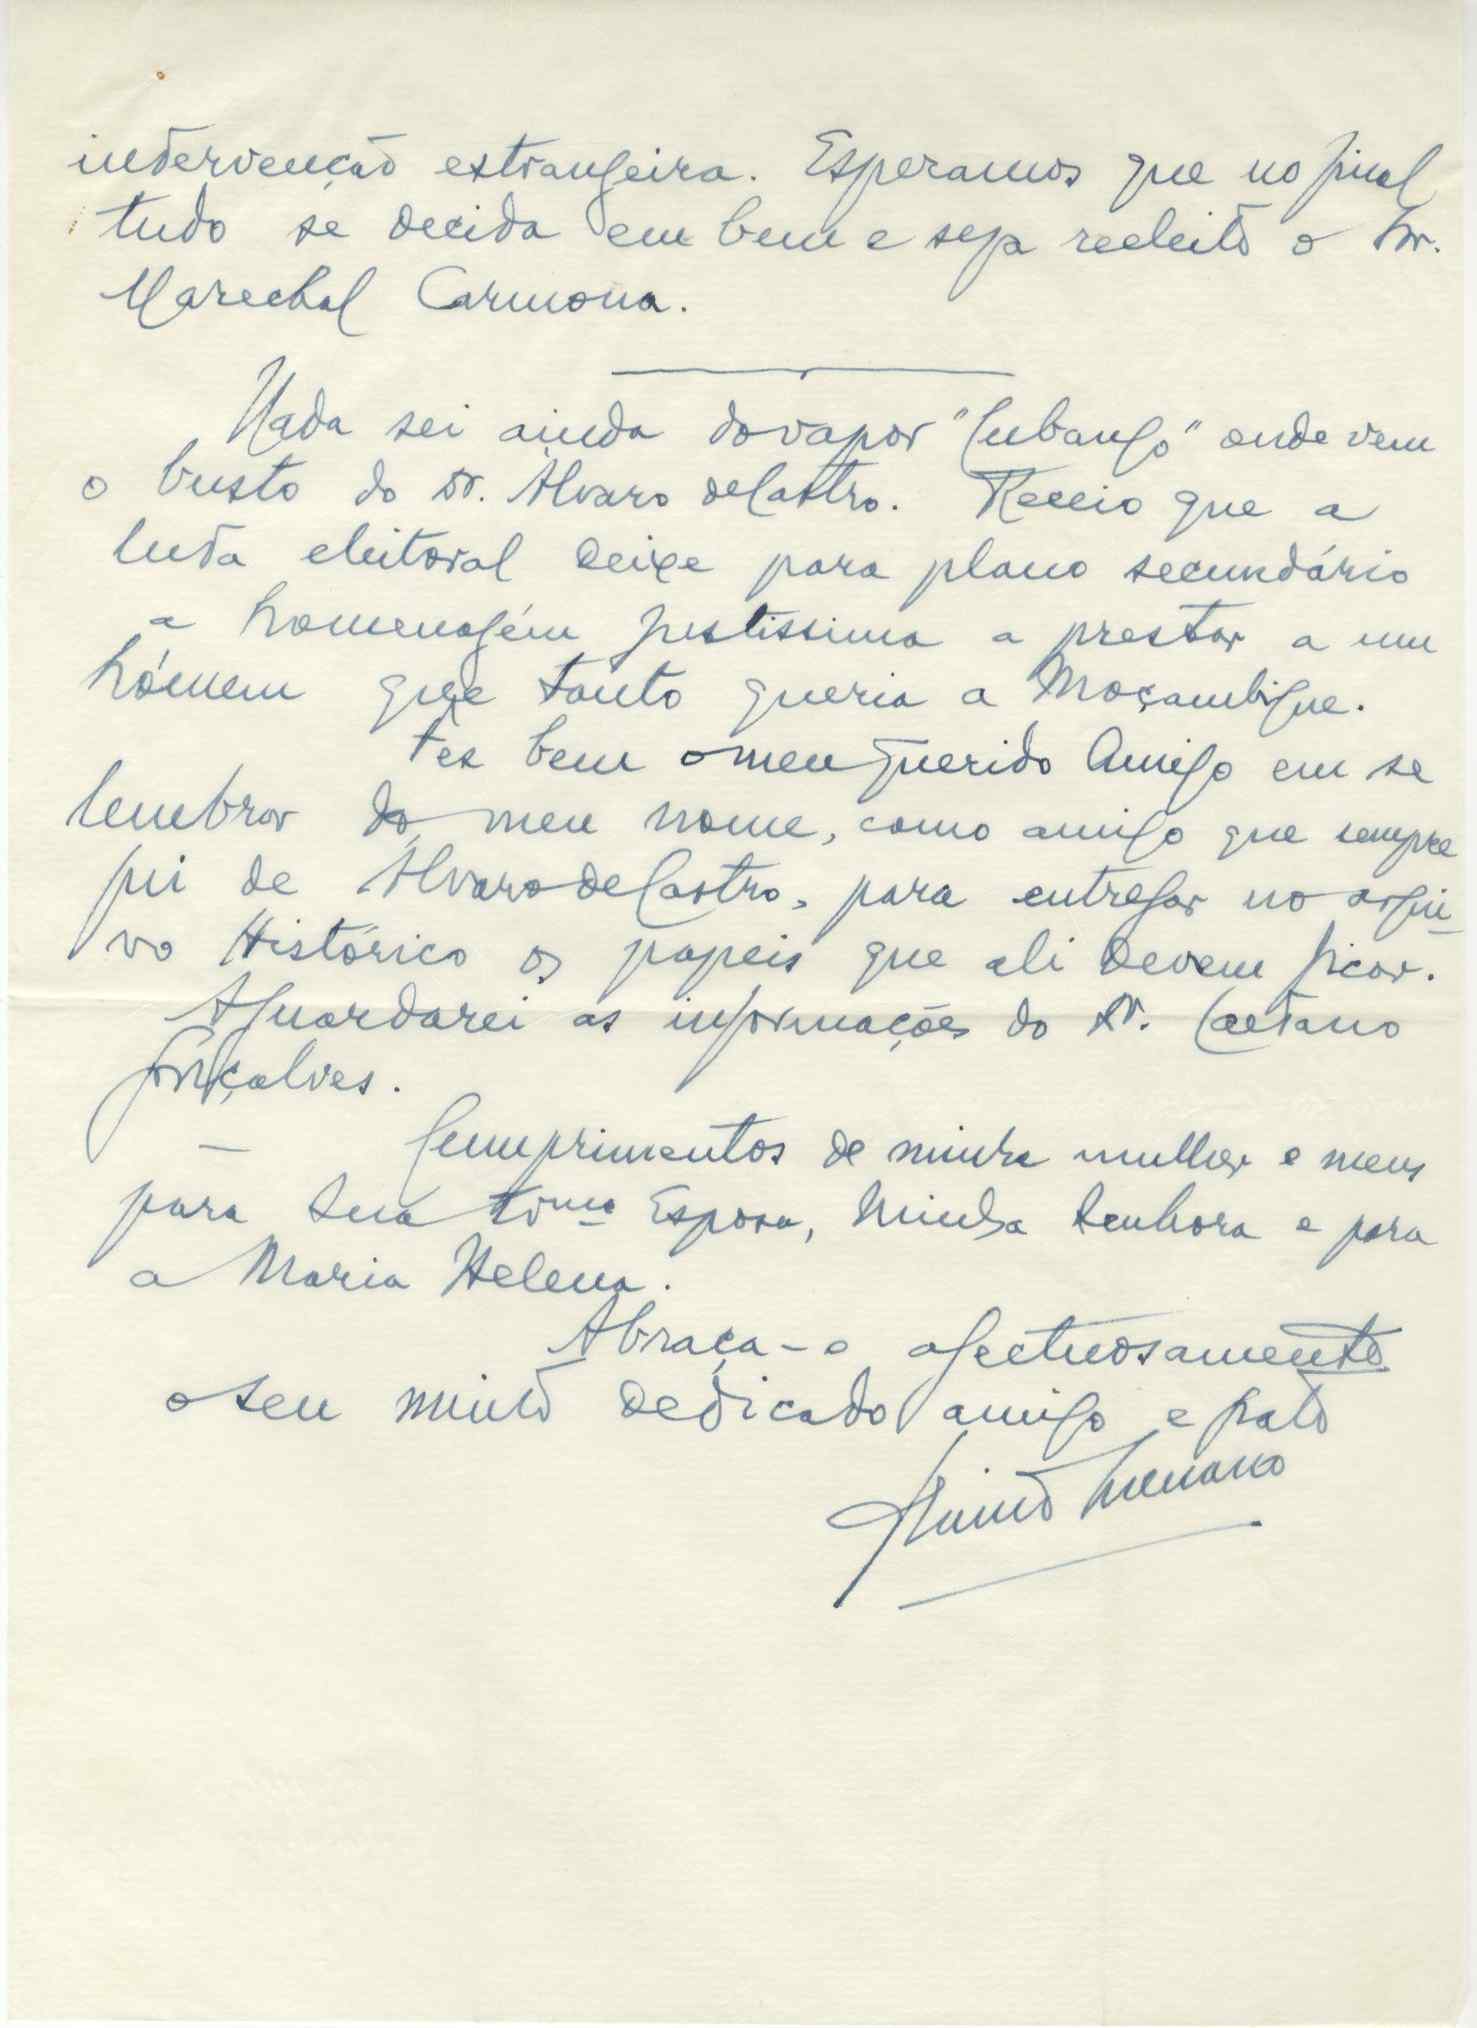 intervenção estrangeira. Esperamos que no final
tudo se decida em bem e seja reeleito o Snr.
Marechal Carmona.
Nada sei ainda do vapor "Cubango" onde vem
o busto do Dr. Álvaro de Castro. Receio que a
luta eleitoral deixe para plano secundário
a homenagém justissima a prestar a um
hómem que tanto queria a Moçambique.
Fes bem o meu querido Amigo em se
lembrar do meu nome, como amigo que sempre
fui de Alvaro de Castro, para entregar no arqui-
vo Histórico os papeis que ali devem ficar.
Aguardarei as informações do Dr. Caetano
Gonçalves.
Cumprimentos de minha mulher e meus
para Sua Esposa, Minha Senhora e para
a Maria Helena.
Abraça-o afectuosamente
o seu muito dedicado amigo e grato